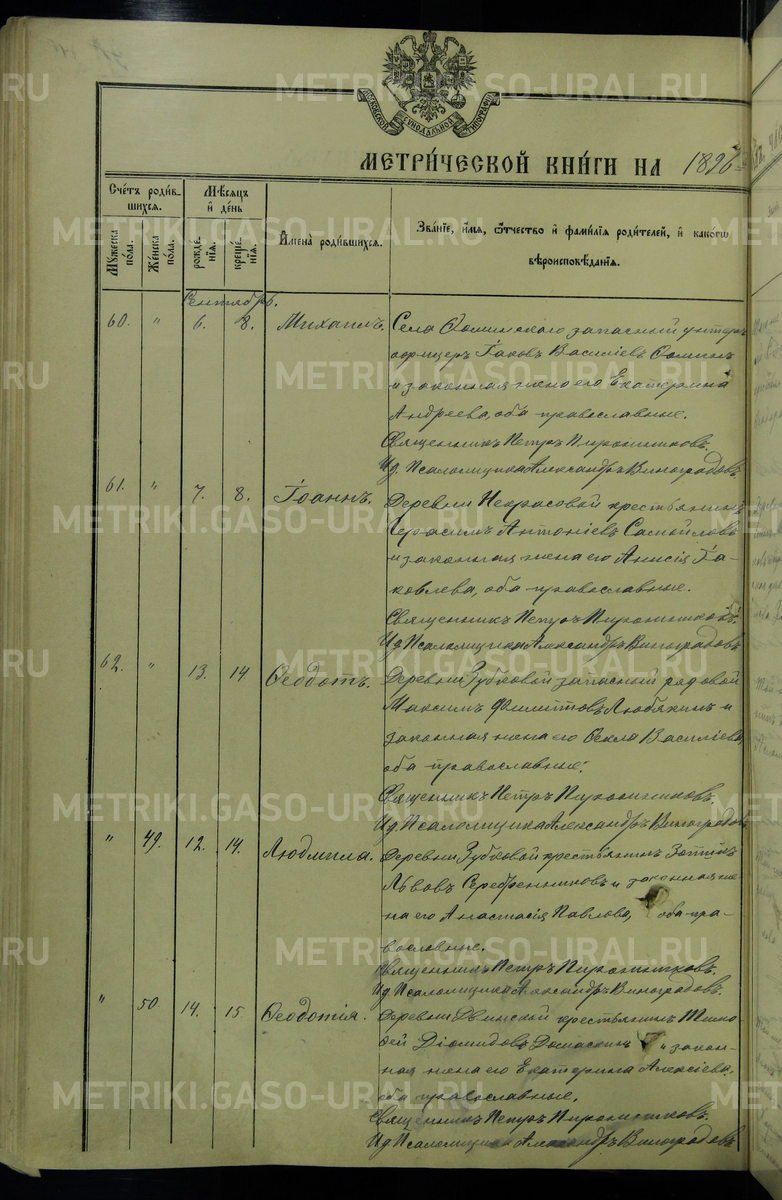 МОСКОВСКОЙ СѴНОДАЛЬНОЙ ТИПОГРАФІИ
МЕТРИ́ЧЕСКОЙ КНИ́ГИ НА 1896
Сче́тъ роди́в-
шихся.
Мꙋ́жеска по́ла.
Же́нска по́ла.
Мѣ́сяцъ
и҆ де́нь
рожде́нїѧ.
креще́нїѧ.
И҆мена̀ роди́вшихся.
Зва́нїе, и҆́мѧ, ѻ҆́тчество и҆ фами́лїѧ роди́телей, и҆ како́гѡ
вѣроисповѣ́данїѧ.
Сентябрь.
60. " 6. 8. Михаилъ. Села Фоминскаго запасный унтеръ
офицеръ Іаковъ Василіевъ Фоминъ
и законная жена его Екатерина
Андреева, оба православные.
Священникъ Петръ Пиронишковъ.
И.д. Псаломщика Александръ Виноградовъ
61. " 7. 8. Іоаннъ. Деревни Некрасовой крестьянинъ
Герасимъ Антоніевъ Самойловъ
и законная жена его Анисія Іа-
ковлева, оба православные.
Священникъ Петръ Пиронишковъ.
И.д. Псаломщика Александръ Виноградовъ
62. " 13. 14 Ѳеодотъ. Деревни Зубковой запасный рядовой
Максимъ Филипповъ Любякинъ и
законная жена его Ѳекла Василіева,
оба православные.
Священникъ Петръ Пиронишковъ.
И.д. Псаломщика Александръ Виноградовъ
" 49. 12. 14. Людмила. Деревни Зубковой крестьянинъ Зотикъ
Львовъ Серебренниковъ и законная же-
на его Анастасія Павлова, оба пра-
вославные.
Священникъ Петръ Пиронишковъ.
И.д. Псаломщика Александръ Виноградовъ.
" 50. 14. 15. Ѳеодотія. Деревни Двинской крестьянинъ Тимо-
ѳей Діомидовъ Домаскинъ и закон-
ная жена его Екатерина Алексіева,
оба православные.
Священникъ Петръ Пиронишковъ.
И.д. Псаломщика Александръ Виноградовъ
METRIKI.GASO-URAL.RU